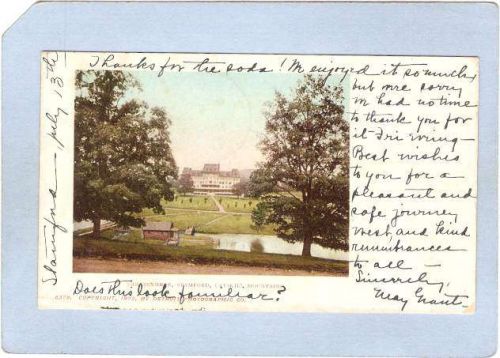 Stamford - July 13th
Thanks for the soda! We enjoyed it so much,
but were sorry
we had no time
to thank you for
it Fri evening -
Best wishes
to you for a
pleasant and
safe journey
West and kind
remembrances
to all -
Sincerely,
May Grant
STAMFORD, CATSKILL MOUNTAINS
Does this look familiar?
COPYRIGHT, 1902, BY DETROIT PHOTOGRAPHIC CO.